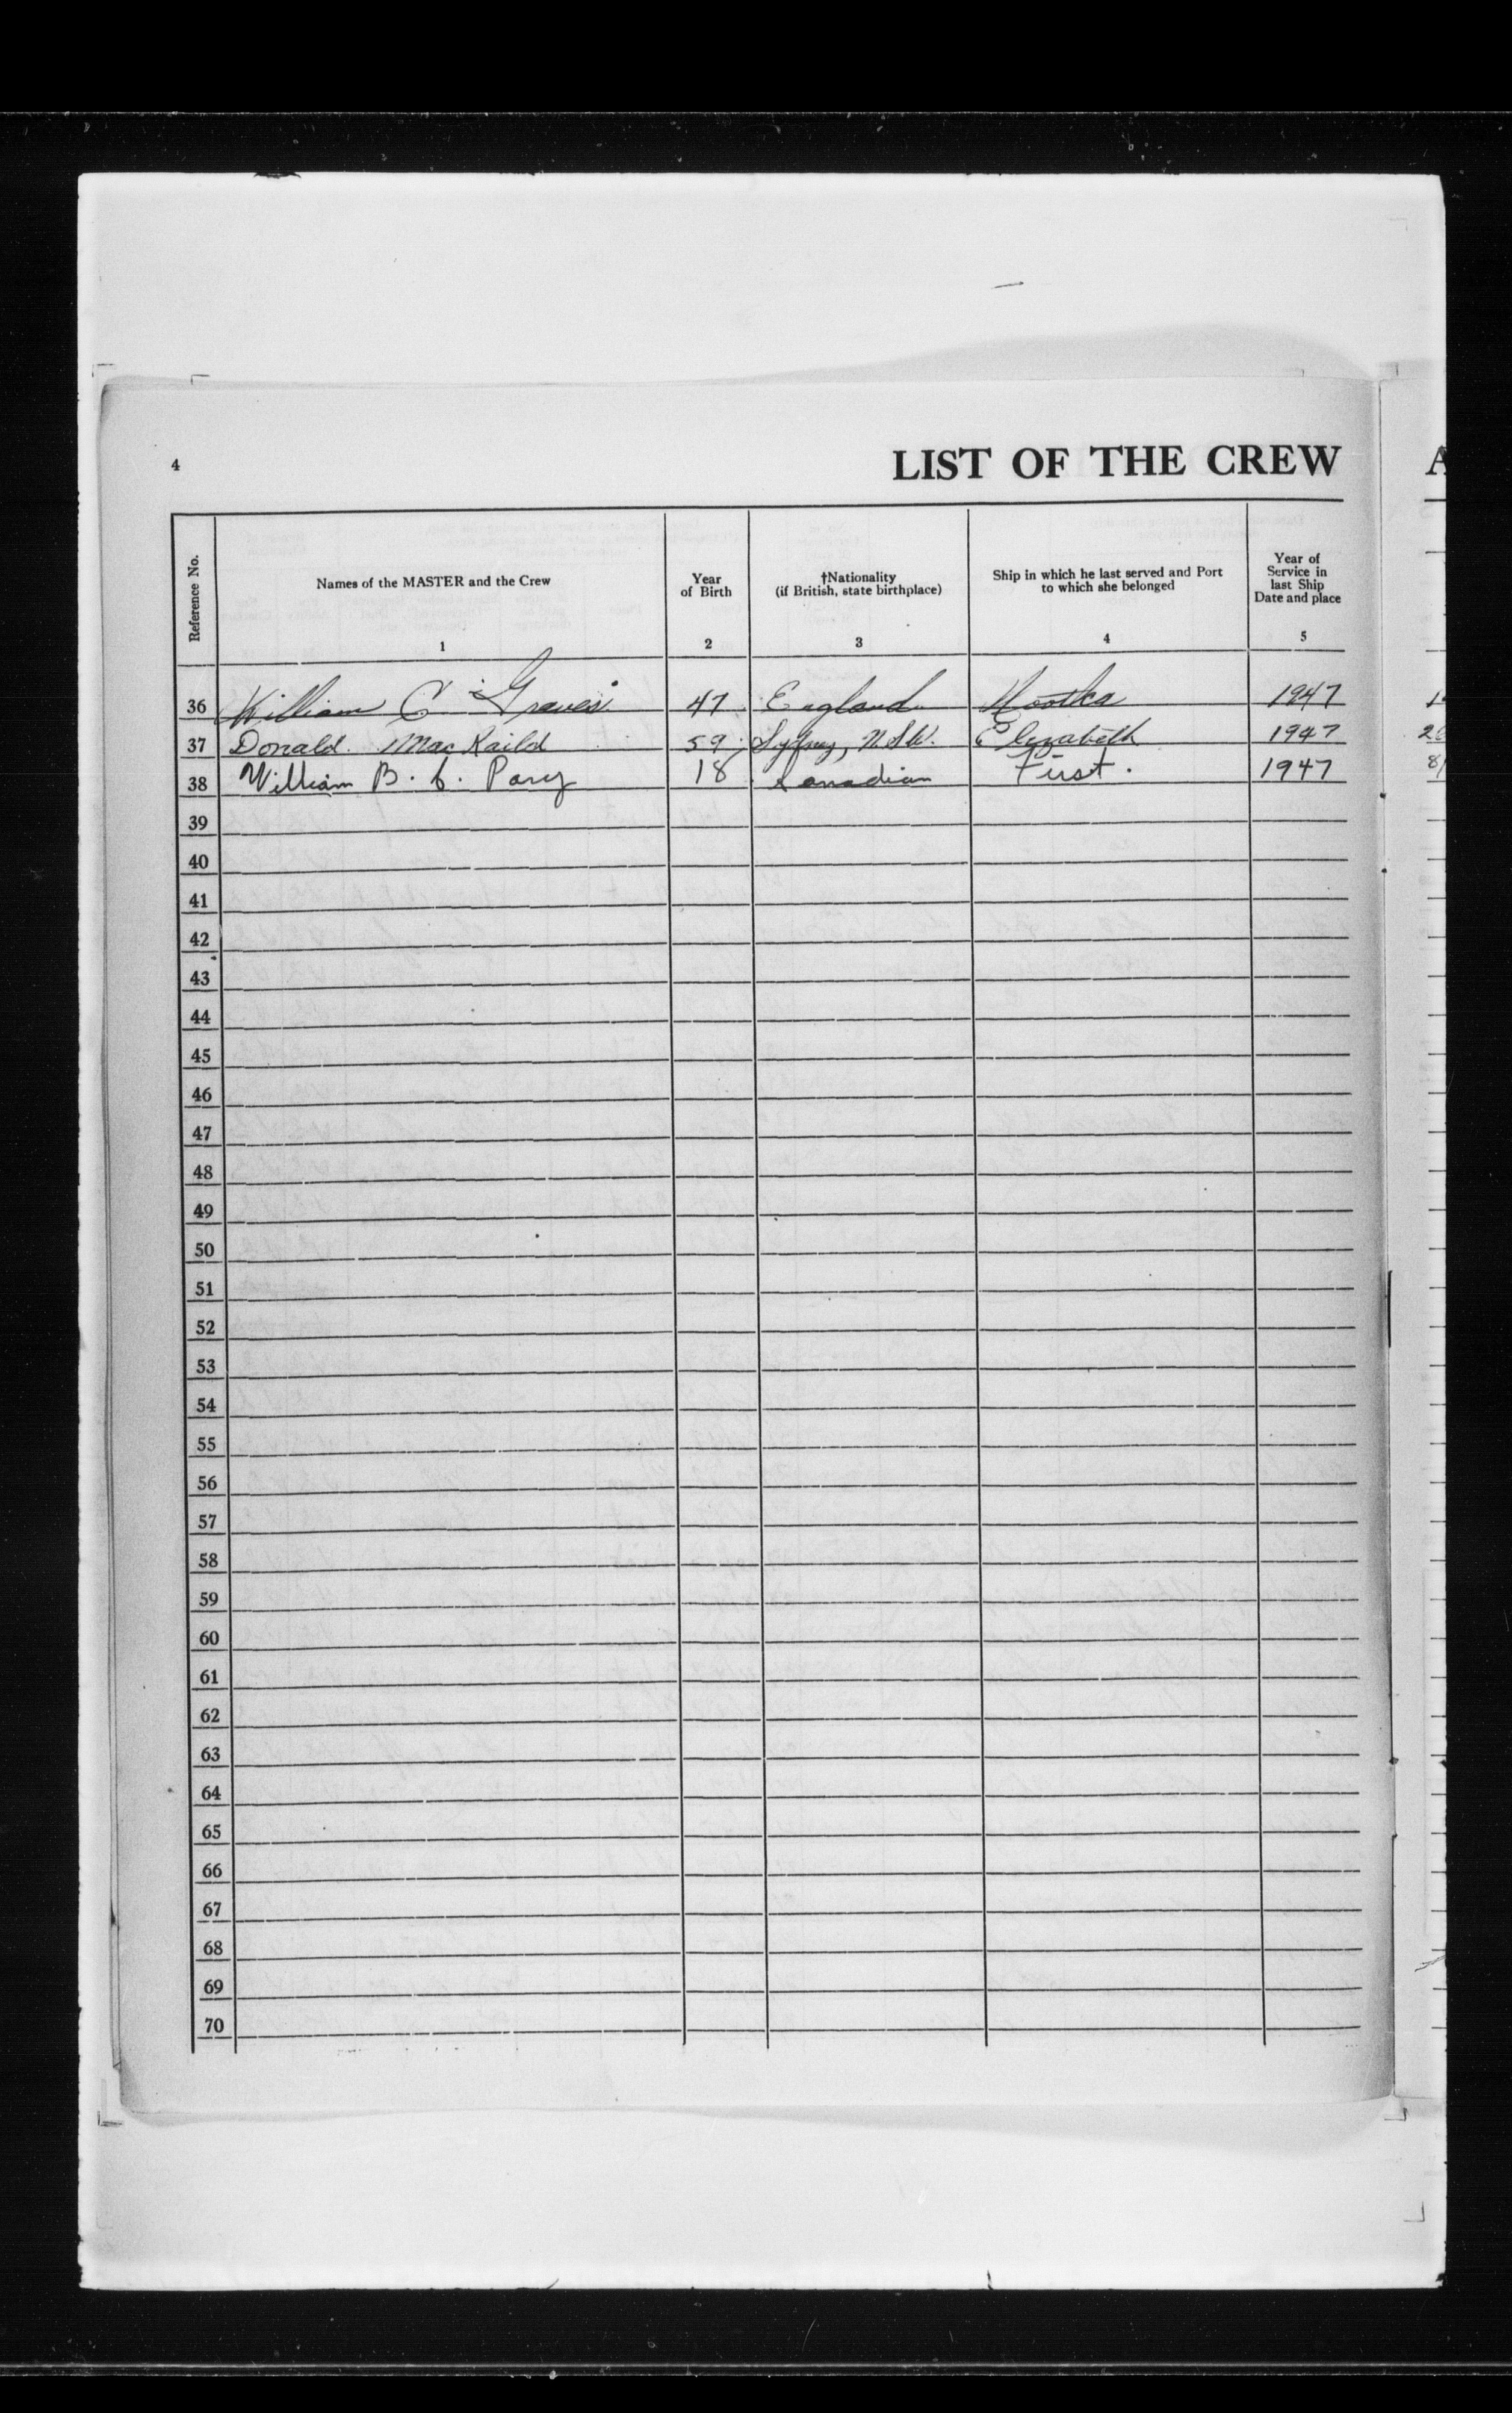 4
LIST OF THE CREW
A
Reference No.
Names of the MASTER and the Crew
1
Year
of Birth
2
†Nationality
(if British, state birthplace)
3
Ship in which he last served and Port
to which she belonged
4
Year of
Service in
last Ship
Date and place
5
36 William C Graves 47 England Nootka 1947
37 Donald 59 Sydney, N.S.W. Elizabeth 1947
38 William B. 18 Canadian First. 1947
39
40
41
42
43
44
45
46
47
48
49
50
51
52
53
54
55
56
57
58
59
60
61
62
63
64
65
66
67
68
69
70